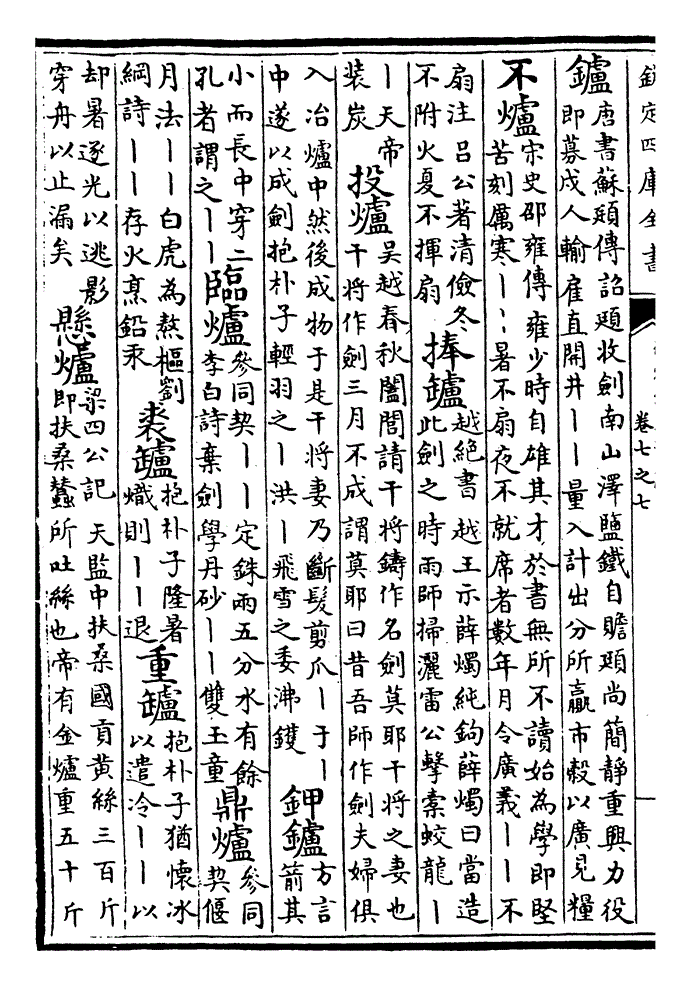 欽定四庫全書
卷七之七
鑪
唐書蘇頲傳詔頲收劍南山澤鹽鐵自贍頲尚簡靜重興力役
即募戍人輸雇直開井丨丨量入計出分所贏市糓以廣見糧
不爐
宋史邵雍傳雍少時自雄其才於書無所不讀始為學即堅
苦刻厲寒丨丨暑不扇夜不就席者數年月令廣義丨丨不
扇注吕公著清儉冬
不附火夏不揮扇
捧罏
越絶書越王示薛燭純鉤薛燭曰當造
此劍之時雨師掃灑雷公擊橐蛟龍丨
丨天帝
装炭
投爐
吳越春秋闔閭請干將鑄作名劍莫耶干將之妻也
干將作劍三月不成謂莫耶曰昔吾師作劍夫婦俱
入冶爐中然後成物于是干將妻乃斷髮剪爪丨于丨
中遂以成劍抱朴子輕羽之丨洪丨飛雪之委沸鑊
鉀鑪
方言
箭其
小而長中穿二
孔者謂之丨丨
臨爐
參同契丨丨定銖兩五分水有餘
李白詩棄劍學丹砂丨丨雙玉童
鼎爐
參同
契偃
月法丨丨白虎為熬樞劉
綱詩丨丨存火烹鉛汞
裘罏
抱朴子隆暑
熾則丨丨退
重罏
抱朴子猶懷冰
以遣冷丨丨以
却暑逐光以逃影
穿舟以止漏矣
懸爐
梁四公記天監中扶桑國貢黄絲三百斤
即扶桑蠶所吐絲也帝有金爐重五十斤